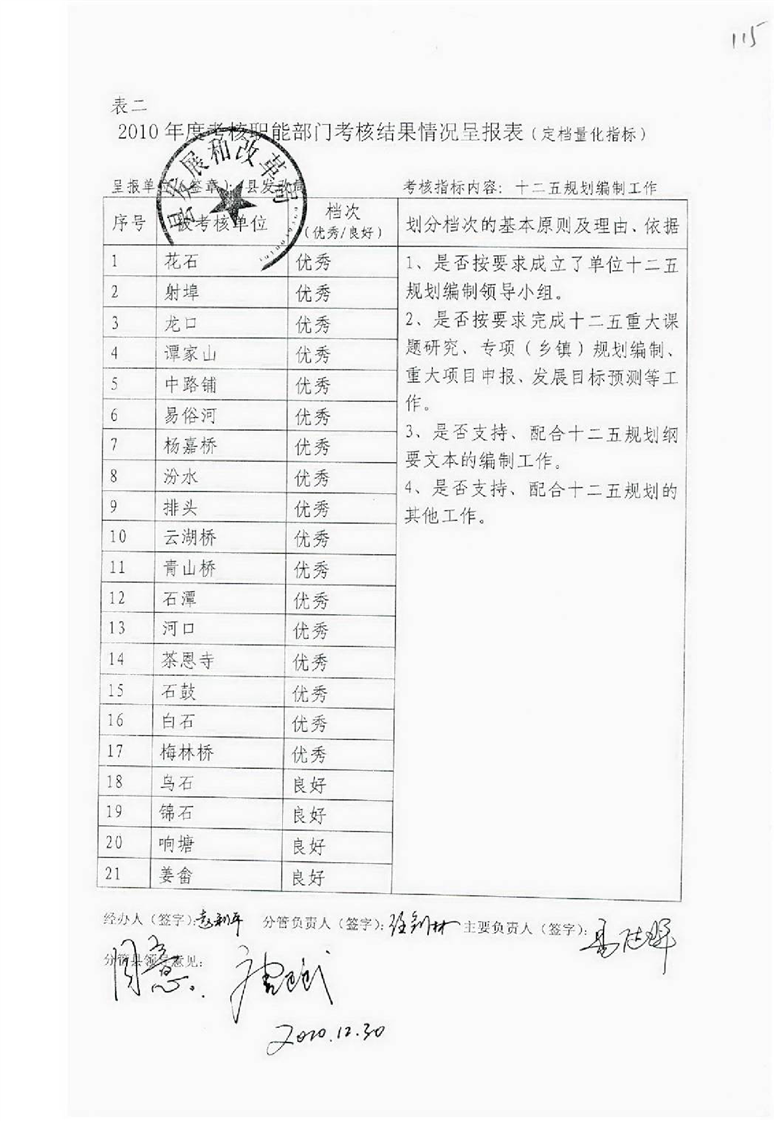 115
表二
2010年度考核职能部门考核结果情况呈报表（定档量化指标）
县发展和改革局
呈报单位（签章）：县发改局 考核指标内容：十二五规划编制工作
序号 被考核单位 档次（优秀/良好） 划分档次的基本原则及理由、依据
1 花石 优秀
2 射埠 优秀
3 龙口 优秀
4 谭家山 优秀
5 中路铺 优秀
6 易俗河 优秀
7 杨嘉桥 优秀
8 汾水 优秀
9 排头 优秀
10 云湖桥 优秀
11 青山桥 优秀
12 石潭 优秀
13 河口 优秀
14 茶恩寺 优秀
15 石鼓 优秀
16 白石 优秀
17 梅林桥 优秀
18 乌石 良好
19 锦石 良好
20 响塘 良好
21 姜畲 良好
1、是否按要求成立了单位十二五
规划编制领导小组。
2、是否按要求完成十二五重大课
题研究、专项（乡镇）规划编制、
重大项目申报、发展目标预测等工
作。
3、是否支持、配合十二五规划纲
要文本的编制工作。
4、是否支持、配合十二五规划的
其他工作。
经办人（签字）： 分管负责人（签字）： 主要负责人（签字）：
分管县领导意见：
同意.
2010.12.30